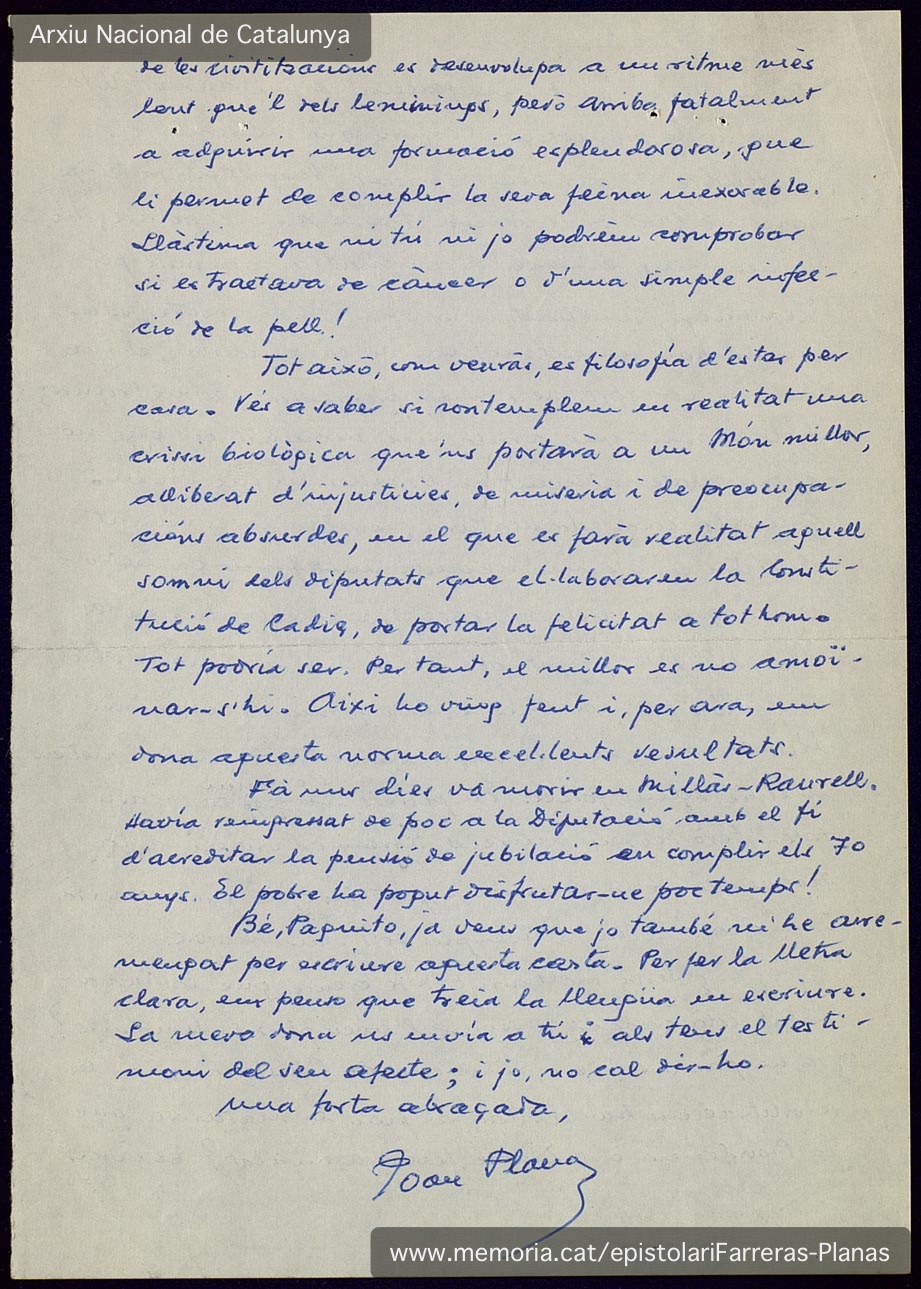 Arxiu Nacional de Catalunya
de les civilitzacions es desenvolupa a un ritme mès
lent que'l dels lemmings, però arriba fatalment
a adquirir una formació esplendorosa, que
li permet de complir la seva feina inexorable.
Llàstima que ni tú ni jo podrèm comprobar
si es tractava de càncer o d'una simple infec-
ció de la pell!
Tot aixó, com veuràs, es filosofía d'estar per
casa. Vés a saber si contemplem en realitat una
crissi biològica que'ns portarà a un Món millor,
alliberat d'injusticies, de miseria i de preocupa-
cións absurdes, en el que es farà realitat aquell
somni dels diputats que el·laboraren la Consti-
tució de Cadiç, de portar la felicitat a tothom.
Tot podría ser. Per tant, el millor es no amoï-
nar-s'hi. Aixi ho vaig fent i, per ara, em
dona aquesta norma excel·lents resultats.
Fà uns dies va morir en Millàs-Raurell.
Havía reingressat de poc a la Diputació amb el fi
d'acreditar la pensió de jubilació en complir els 70
anys. El pobre ha pogut disfrutar-ne poc temps!
Bé, Paquito, ja veus que jo també m'he arre-
mengat per escriure aquesta carta. Per fer la lletra
clara, em penso que treia la llengüa en escriure.
La meva dona us envía a tú i als teus el testi-
moni del seu afecte; i jo, no cal dir-ho.
Una forta abraçada,
Joan Planas
www.memoria.cat/epistolariFarreras-Planas